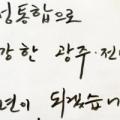 통합으로
강한 광주·전
년이 되겠습니